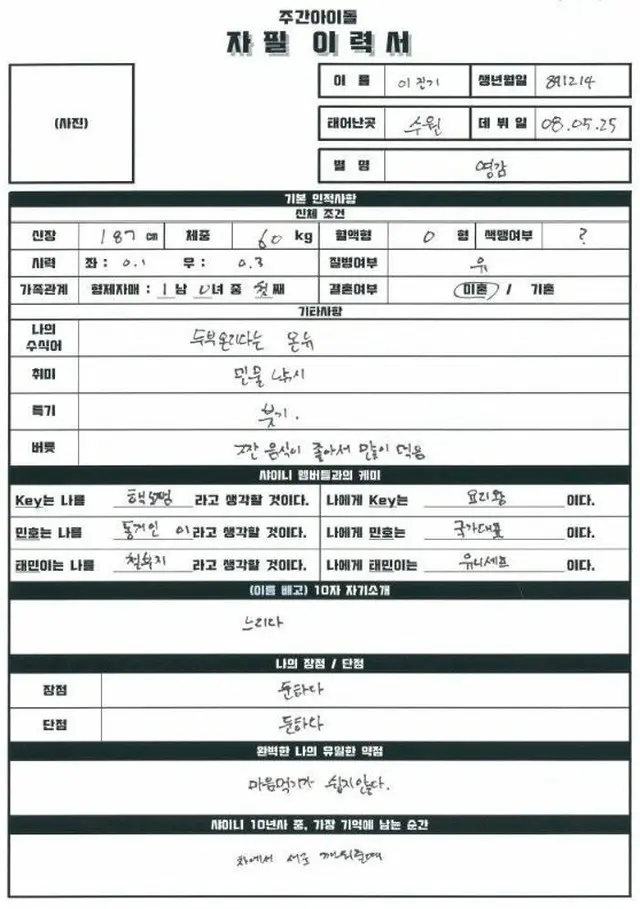 주간아이돌
자필 이력서
(사진)
이 름 이진기 생년월일 891214
태어난곳 수원 데 뷔 일 08.05.25
별 명 영감
기본 인적사항
신체 조건
신장 187 cm 체중 60 kg 혈액형 O 형 색맹여부 ?
시력 좌 : 0.1 우 : 0.3 질병여부 유
가족관계 형제자매 : 1 남 0 녀 중 첫 째 결혼여부 미혼 / 기혼
기타사항
나의 수식어 두부 온리다는 온유
취미 민물 낚시
특기 붓기.
버릇 짠 음식이 좋아서 많이 먹음
샤이니 멤버들과의 케미
Key는 나를 라고 생각할 것이다. 나에게 Key는 요리왕 이다.
민호는 나를 동거인 이라고 생각할 것이다. 나에게 민호는 국가대표 이다.
태민이는 나를 철부지 라고 생각할 것이다. 나에게 태민이는 유니세프 이다.
(이름 빼고) 10자 자기소개
느리다
나의 장점 / 단점
장점 둔하다
단점 둔하다
완벽한 나의 유일한 약점
마음먹기가 쉽지않다.
샤이니 10년사 중, 가장 기억에 남는 순간
차에서 서로 깨워줄때